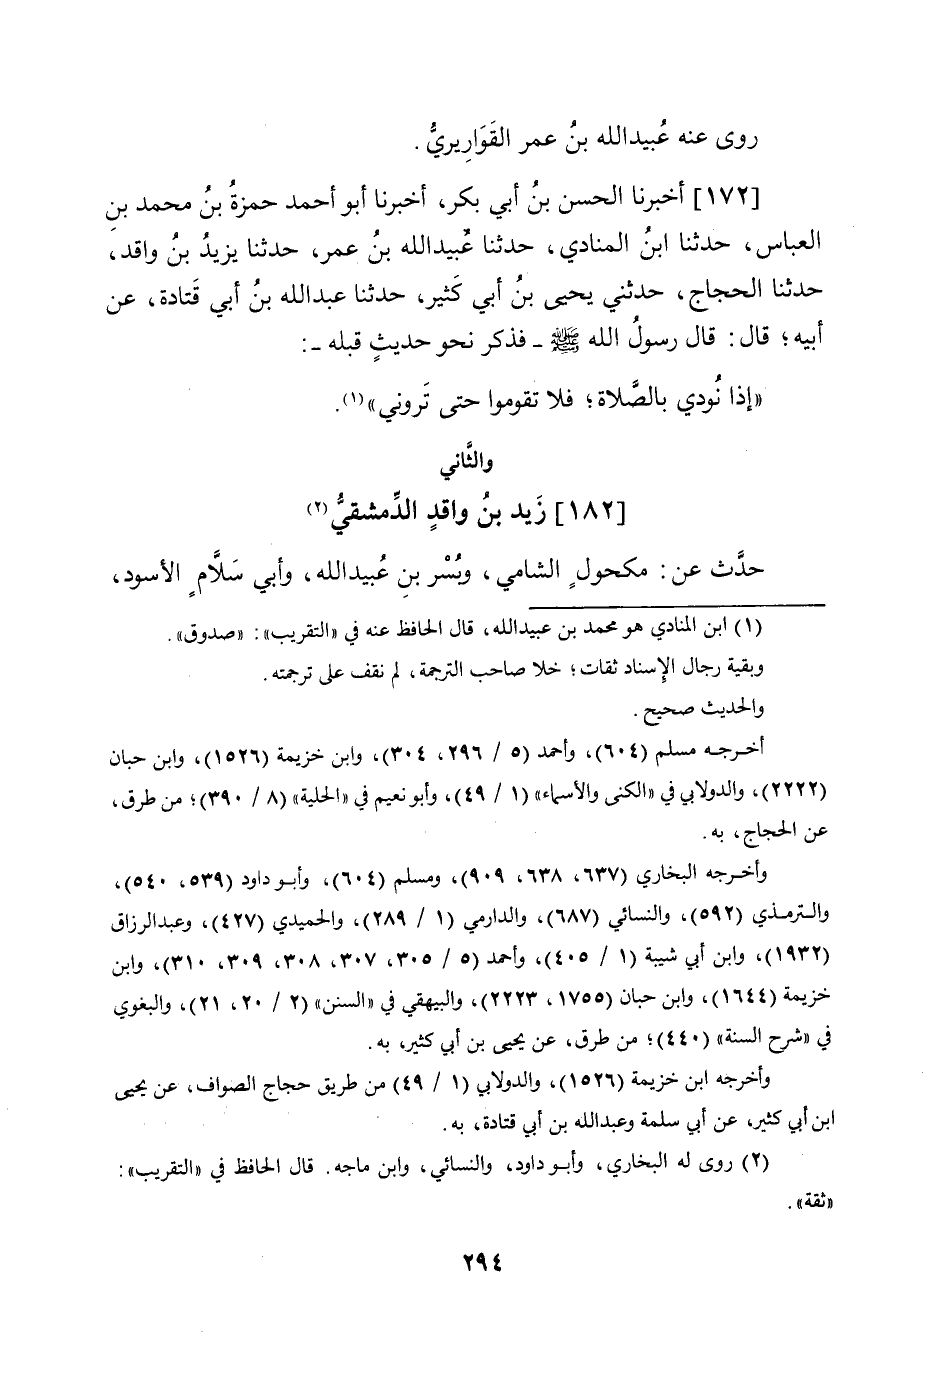 روى عنه عُبيدالله بنُ عمر القَوَاريريُّ .
[١٧٢] أخبرنا الحسن بنُ أبي بكر، أخبرنا أبو أحمد حمزةُ بنُ محمد بنِ
العباس، حدثنا ابنُ المنادي، حدثنا عُبيدالله بنُ عمر، حدثنا يزيدُ بنُ واقد،
حدثنا الحجاج، حدثني يحيى بنُ أبي كَثير، حدثنا عبدالله بنُ أبي قَتادة، عن
أبيه؛ قال: قال رسولُ الله ﷺ ـ فذكر نحو حديثٍ قبله ـ:
«إذا نُودي بالصَّلاة؛ فلا تقوموا حتى تَروني»(١).
والثَّاني
[١٨٢] زَيد بنُ واقدٍ الدِّمشقيُّ(٢)
حدَّث عن: مكحولٍ الشامي، وبُسْر بنِ عُبيدالله، وأبي سَلَّامٍ الأسود،
(١) ابن المنادي هو محمد بن عبيدالله، قال الحافظ عنه في «التقريب»: «صدوق».
وبقية رجال الإسناد ثقات؛ خلا صاحب الترجمة، لم نقف على ترجمته.
والحديث صحيح.
أخرجه مسلم (٦٠٤)، وأحمد (٥ / ٢٩٦، ٣٠٤)، وابن خزيمة (١٥٢٦)، وابن حبان
(٢٢٢٢)، والدولابي في «الكنى والأسماء» (١ / ٤٩)، وأبو نعيم في «الحلية» (٨ / ٣٩٠)؛ من طرق،
عن الحجاج، به.
وأخرجه البخاري (٦٣٧، ٦٣٨، ٩٠٩)، ومسلم (٦٠٤)، وأبو داود (٥٣٩، ٥٤٠)،
والترمذي (٥٩٢)، والنسائي (٦٨٧)، والدارمي (١ / ٢٨٩)، والحميدي (٤٢٧)، وعبدالرزاق
(١٩٣٢)، وابن أبي شيبة (١ / ٤٠٥)، وأحمد (٥ / ٣٠٥، ٣٠٧، ٣٠٨، ٣٠٩، ٣١٠)، وابن
خزيمة (١٦٤٤)، وابن حبان (١٧٥٥، ٢٢٢٣)، والبيهقي في «السنن» (٢ / ٢٠، ٢١)، والبغوي
في «شرح السنة» (٤٤٠)؛ من طرق، عن يحيى بن أبي كثير، به.
وأخرجه ابن خزيمة (١٥٢٦)، والدولابي (١ / ٤٩) من طريق حجاج الصواف، عن يحيى
ابن أبي كثير، عن أبي سلمة وعبدالله بن أبي قتادة، به.
(٢) روى له البخاري، وأبو داود، والنسائي، وابن ماجه. قال الحافظ في «التقريب»:
«ثقة».
٢٩٤